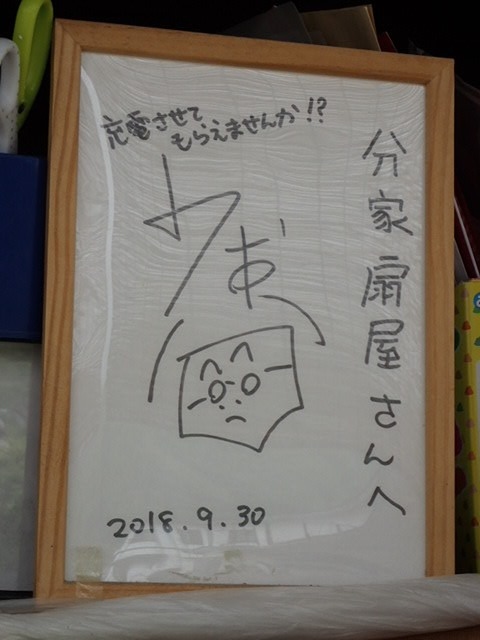 充電させて
もらえませんか!?
分家扇屋さんへ
2018.9.30